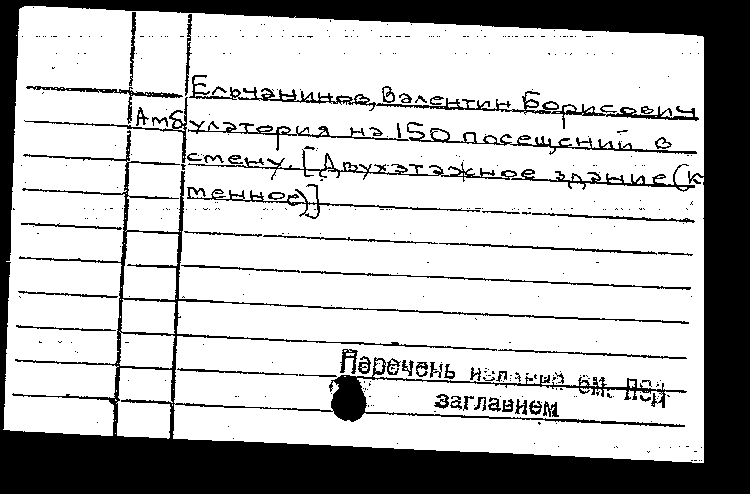 Ельчанинов, Валентин Борисович
Амбулатория на 150 посещений в
смену. [Двухэтажное здание (к
тенное)]
Перечень изданий см. под
заглавием